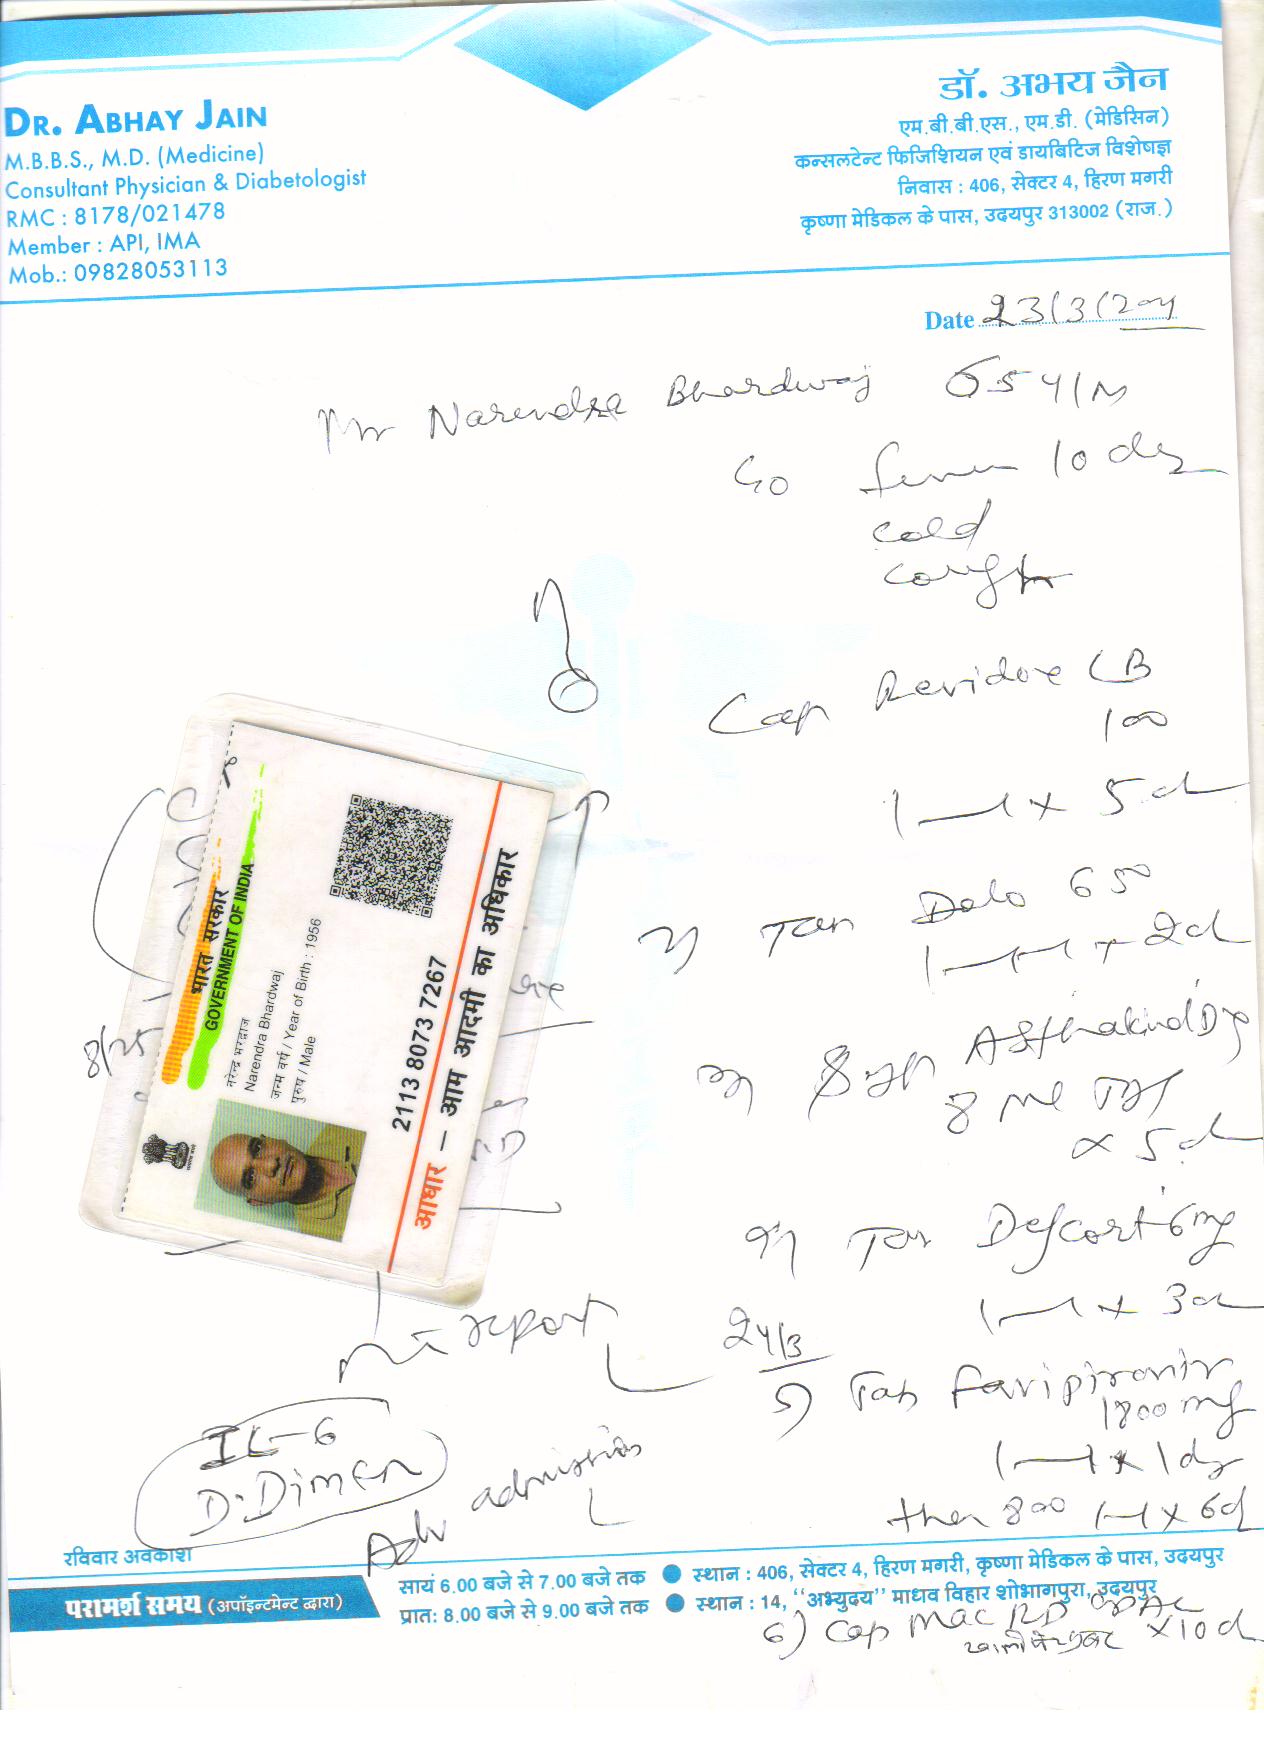 DR. ABHAY JAIN
M.B.B.S., M.D. (Medicine)
Consultant Physician & Diabetologist
RMC : 8178/021478
Member : API, IMA
Mob.: 09828053113
डॉ. अभय जैन
एम.बी.बी.एस., एम.डी. (मेडिसिन)
कन्सलटेन्ट फिजिशियन एवं डायबिटिज विशेषज्ञ
निवास : 406, सेक्टर 4, हिरण मगरी
कृष्णा मेडिकल के पास, उदयपुर 313002 (राज.)
Date 23/3/
Mr Narendra Bhardwaj 65 y/M
fever 10 days
cold
cough
Cap LB
100
x 5 d
Tab Dolo 650
x 2d
8/25
3) Syp Asthakind Dx
8 ml TDS
x 5 d
4) Tab Defcort 6mg
x 3d
24/3
5) Tab favipiravir
1800 mg
x 1 day
then 800 x 6d
6) Cap Mac RD x 10 d
खाली पेट
भारत सरकार
GOVERNMENT OF INDIA
नरेन्द्र भरद्वाज
Narendra Bhardwaj
जन्म वर्ष / Year of Birth : 1956
पुरुष / Male
2113 8073 7267
आधार – आम आदमी का अधिकार
report
IL-6
D-Dimer
Adv admission
रविवार अवकाश
परामर्श समय (अपॉइन्टमेन्ट द्वारा)
सायं 6.00 बजे से 7.00 बजे तक ● स्थान : 406, सेक्टर 4, हिरण मगरी, कृष्णा मेडिकल के पास, उदयपुर
प्रात: 8.00 बजे से 9.00 बजे तक ● स्थान : 14, "अभ्युदय" माधव विहार शोभागपुरा, उदयपुर